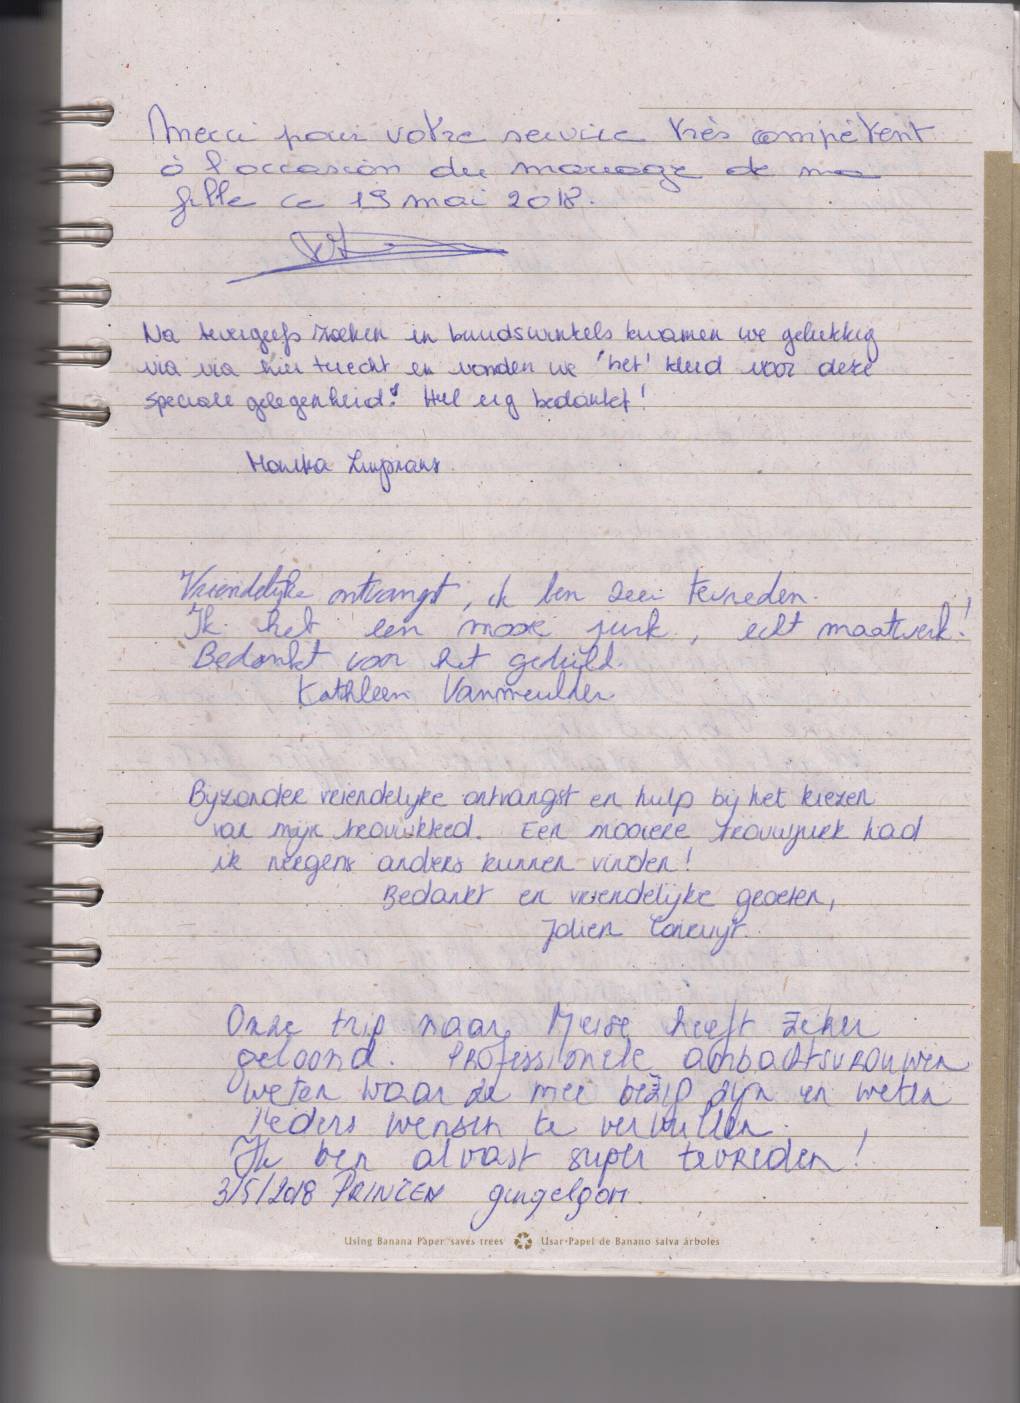 Merci pour votre service très compétent
à l'occasion du mariage de ma
fille ce 19 mai 2018.
Na tevergeefs zoeken in bruidswinkels kwamen we gelukkig
via via hier terecht en vonden we 'het' kleed voor deze
speciale gelegenheid! Heel erg bedankt!
Monika
Vriendelijke ontvangst, ik ben zeer tevreden.
Ik heb een mooie jurk, echt maatwerk!
Bedankt voor het geduld.
Kathleen Vanmeulder
Byzonder vriendelijke ontvangst en hulp bij het kiezen
van mijn trouwkleed. Een mooiere trouwjurk had
ik nergens anders kunnen vinden!
Bedankt en vriendelijke groeten,
Jolien
Onze trip naar Meise heeft zeker
geloond. Professionele ambachtsvrouwen
weten waar ze mee bezig zijn en weten
ieders wensen te vervullen.
Ik ben alvast super tevreden!
3/5/2018 PRINCEN gingelom
Using Banana Paper saves trees Usar Papel de Banano salva árboles